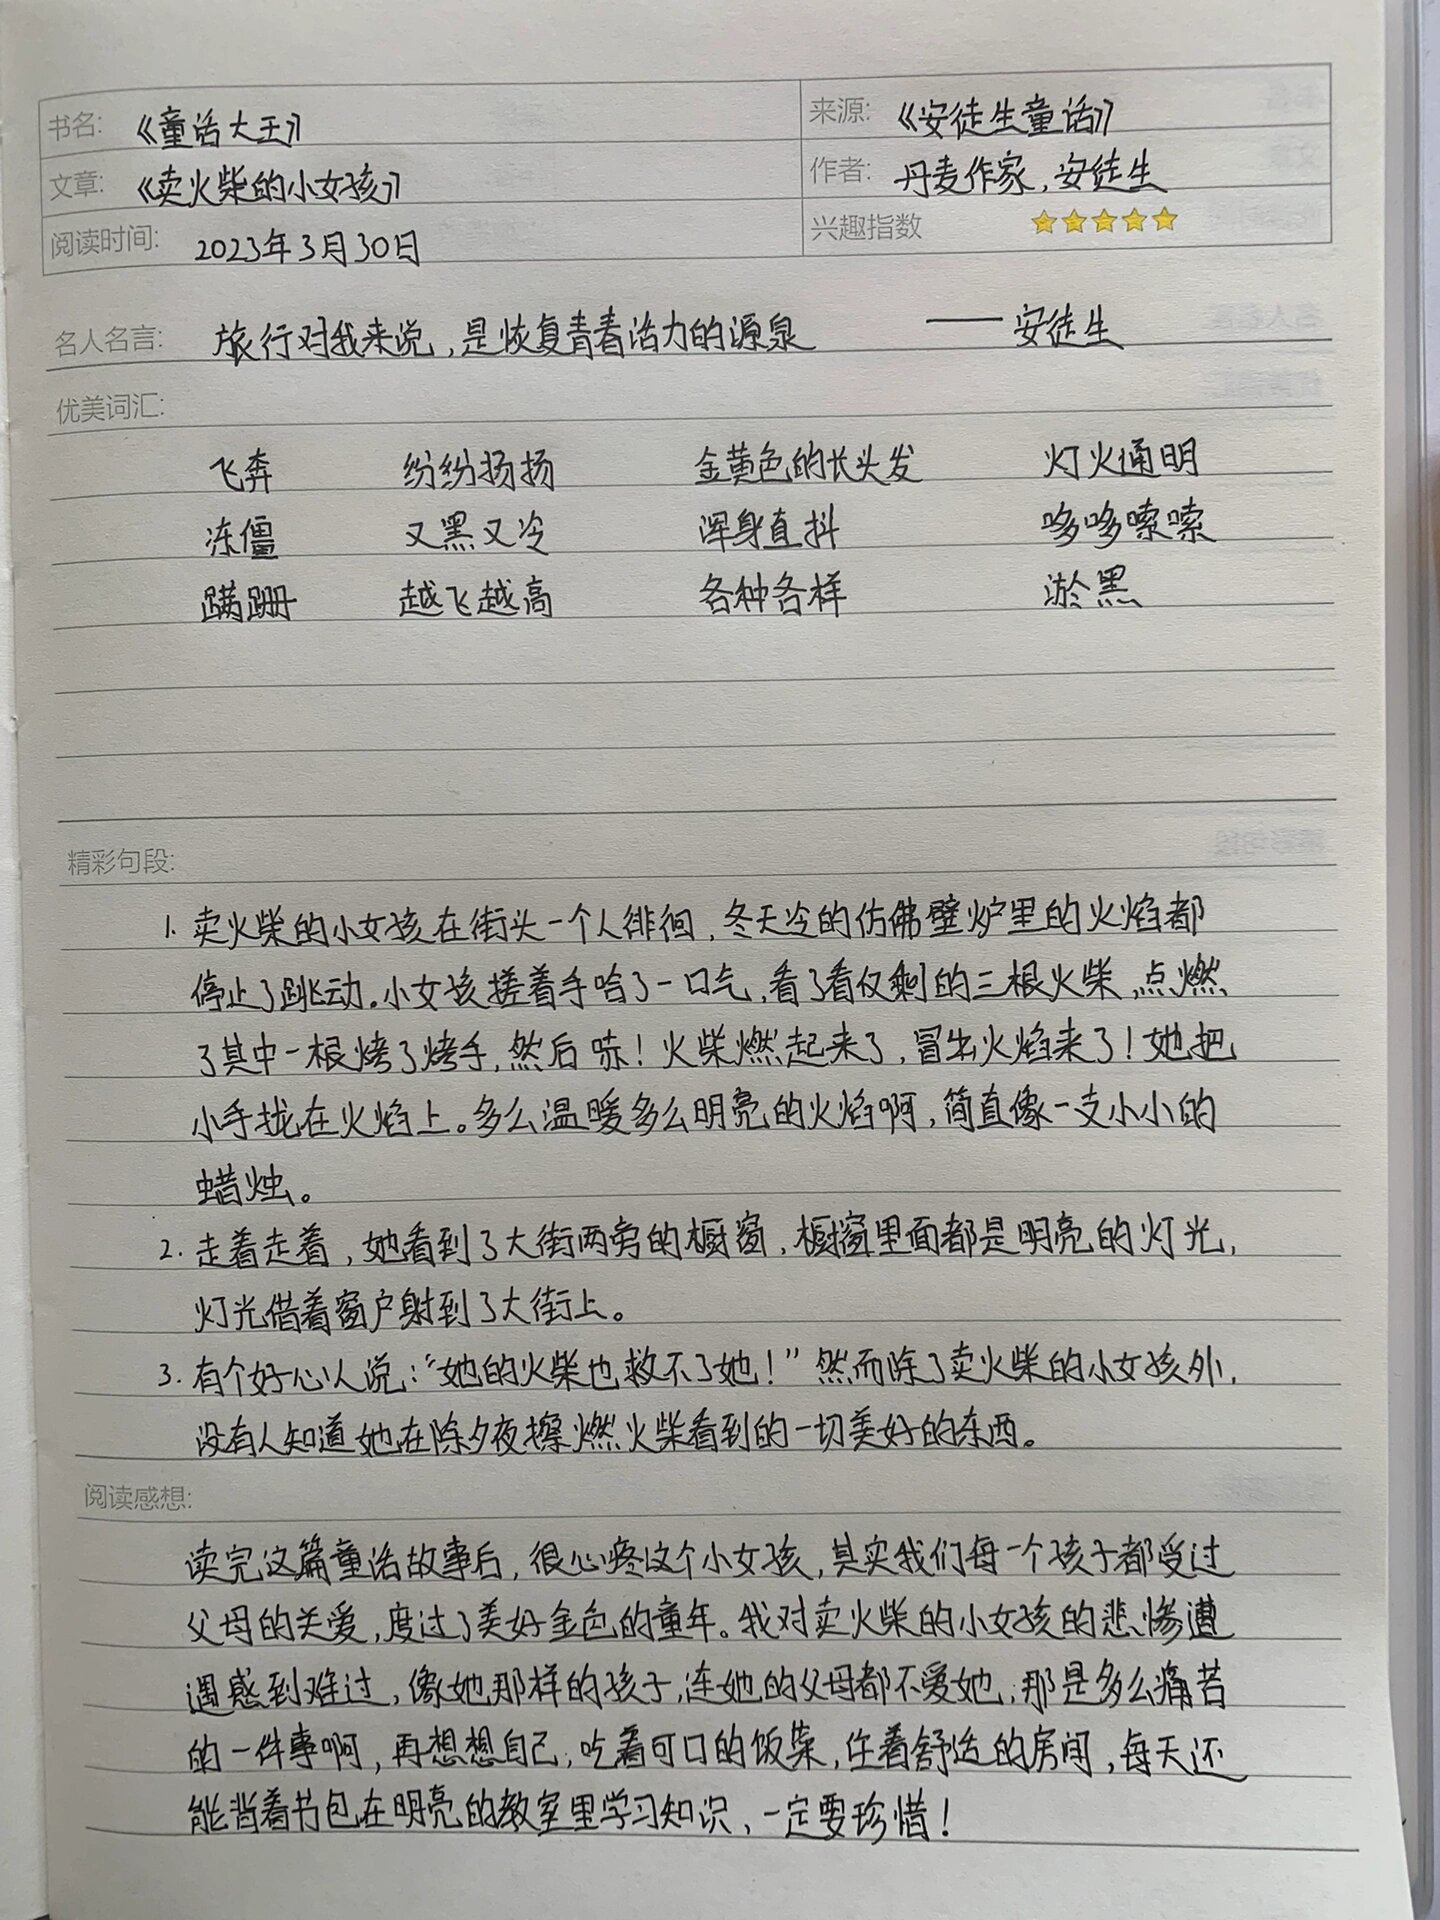 书名: 《童话大王》 来源: 《安徒生童话》
文章: 《卖火柴的小女孩》 作者: 丹麦作家,安徒生
阅读时间: 2023年3月30日 兴趣指数
名人名言: 旅行对我来说,是恢复青春活力的源泉 ——安徒生
优美词汇:
飞奔 纷纷扬扬 金黄色的长头发 灯火通明
冻僵 又黑又冷 浑身直抖 哆哆嗦嗦
蹒跚 越飞越高 各种各样 淤黑
精彩句段:
1. 卖火柴的小女孩在街头一个人徘徊,冬天冷的仿佛壁炉里的火焰都
停止了跳动。小女孩搓着手哈了一口气,看了看仅剩的三根火柴,点燃
了其中一根烤了烤手,然后哧!火柴燃起来了,冒出火焰来了!她把
小手拢在火焰上。多么温暖多么明亮的火焰啊,简直像一支小小的
蜡烛。
2. 走着走着,她看到了大街两旁的橱窗,橱窗里面都是明亮的灯光,
灯光借着窗户射到了大街上。
3. 有个好心人说:“她的火柴也救不了她!”然而除了卖火柴的小女孩外,
没有人知道她在除夕夜擦燃火柴看到的一切美好的东西。
阅读感想:
读完这篇童话故事后,很心疼这个小女孩,其实我们每一个孩子都受过
父母的关爱,度过了美好金色的童年。我对卖火柴的小女孩的悲惨遭
遇感到难过,像她那样的孩子,连她的父母都不爱她,那是多么痛苦
的一件事啊,再想想自己,吃着可口的饭菜,住着舒适的房间,每天还
能背着书包在明亮的教室里学习知识,一定要珍惜!